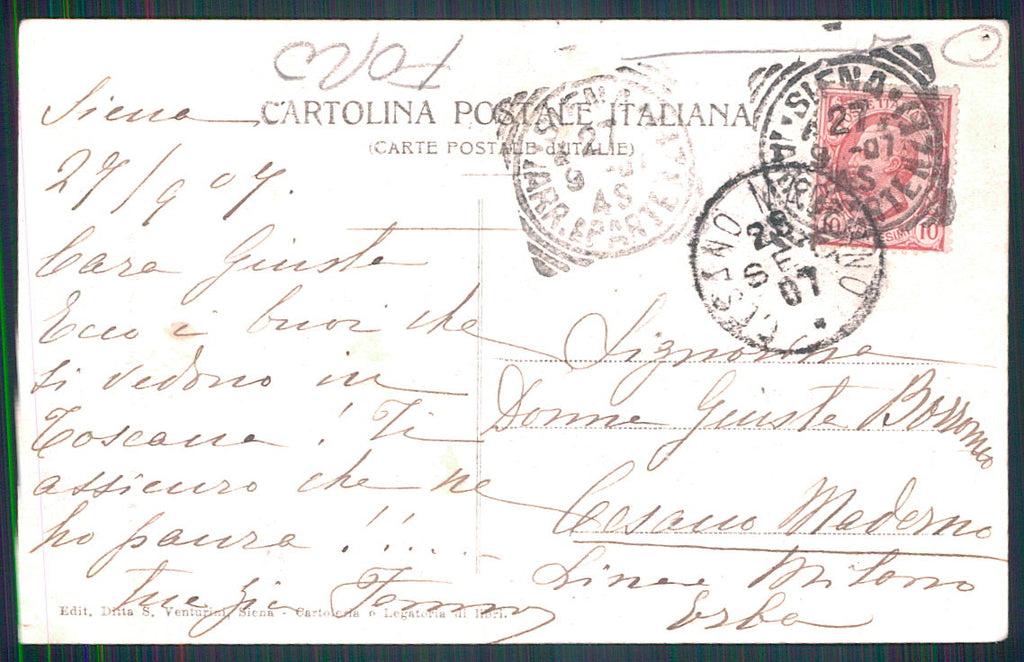 CARTOLINA POSTALE ITALIANA
(CARTE POSTALE d'ITALIE)
Siena
27/9 07.
Cara Giusta
Ecco i buoi che
si vedono in
Toscana! Ti
assicuro che ne
ho paura!!....
tua zia
Signorina
Donna Giusta Borromeo
Cesano Maderno
Linea Milano
Erba
SIENA
ARR. & PARTENZA
27
9 - 07
4S
SIENA
ARR. & PARTENZA
27
9 - 07
4S
CESANO MADERNO
28
SET
07
10
10
Edit. Ditta S. Venturini, Siena - Cartoleria e Legatoria di libri.